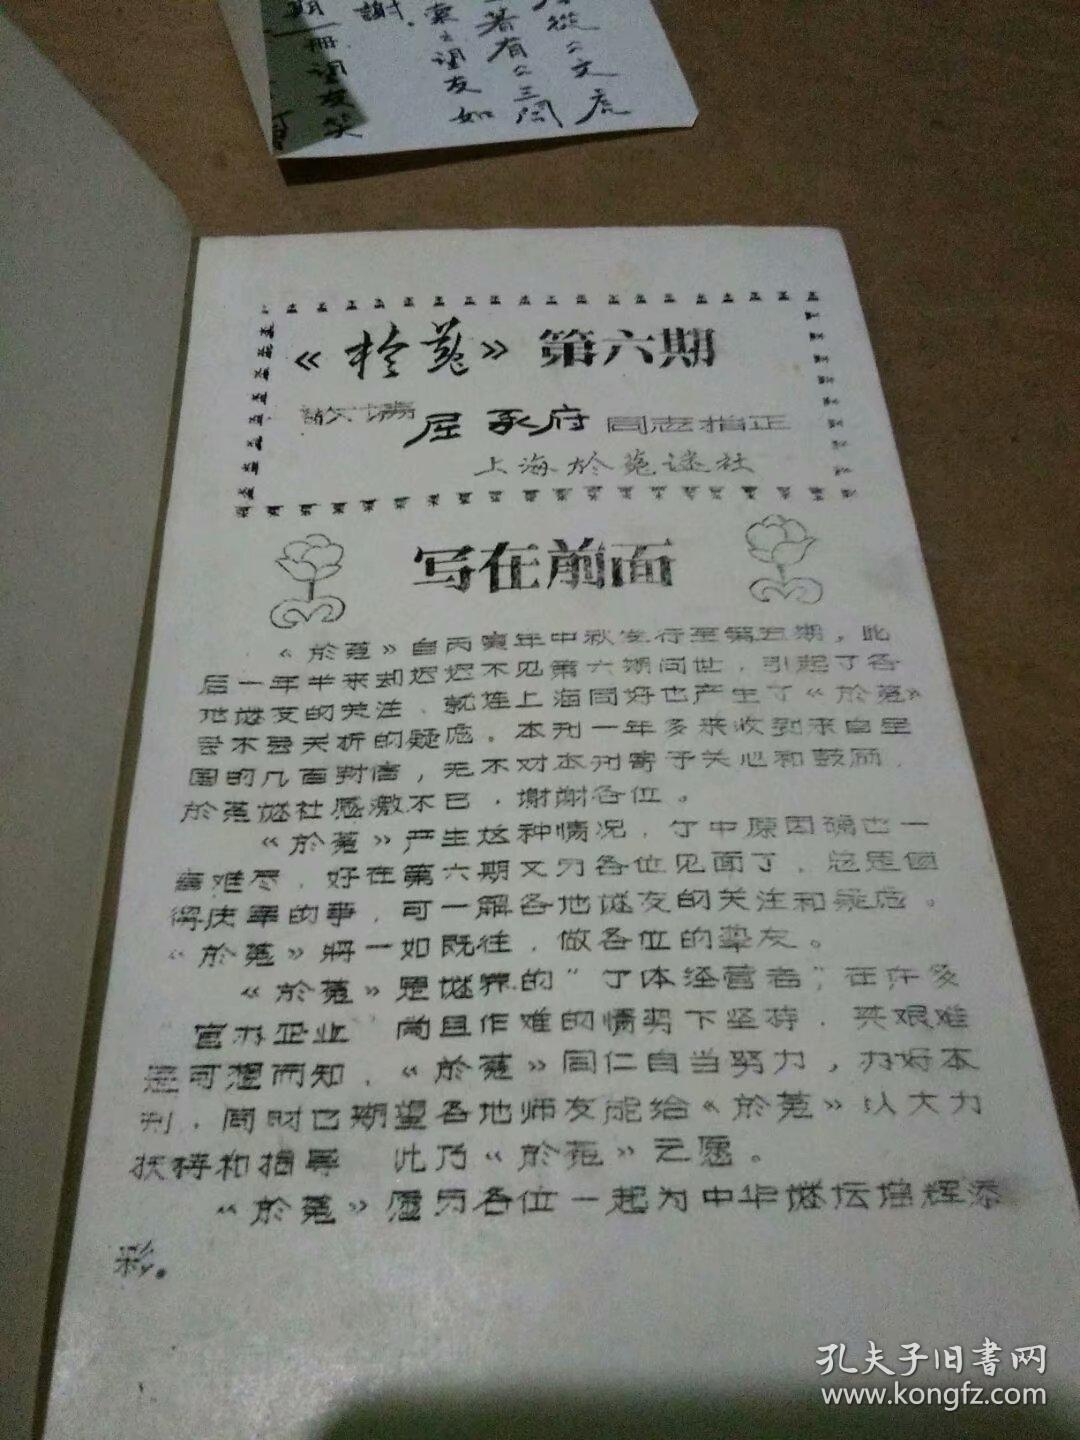 从《文虎
著有《三閣
如
東之謎友
謝.
期一冊謎友笑
《於菟》第六期
敬请 屈承府 同志指正
上海於菟谜社
写在前面
《於菟》自丙寅年中秋发行至第五期，此
后一年半来却迟迟不见第六期问世，引起了各
地谜友的关注，就连上海同好也产生了《於菟》
是不是夭折的疑虑。本刊一年多来收到来自全
国的几百封信，无不对本刊寄予关心和鼓励，
於菟谜社感激不已，谢谢各位。
《於菟》产生这种情况，个中原因确也一
言难尽，好在第六期又为各位见面了，总是值
得庆幸的事，可一解各地谜友的关注和疑虑。
《於菟》将一如既往，做各位的挚友。
《於菟》是谜界的“个体经营者”，在许多
“官办企业”尚且作难的情势下坚持，其艰难
是可想而知，《於菟》同仁自当努力，办好本
刊，同时也期望各地师友能给《於菟》以大力
扶持和指导，此乃《於菟》之愿。
《於菟》愿为各位一起为中华谜坛增辉添
彩。
孔夫子旧書网
www.kongfz.com